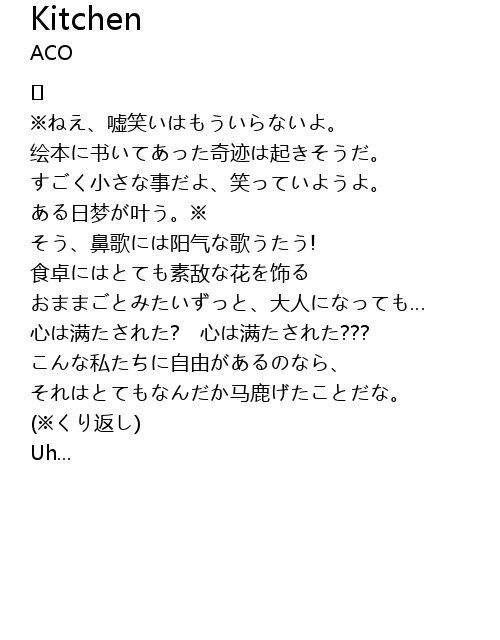 Kitchen
ACO
※ねえ、嘘笑いはもういらないよ。
绘本に书いてあった奇迹は起きそうだ。
すごく小さな事だよ、笑っていようよ。
ある日梦が叶う。※
そう、鼻歌には阳气な歌うたう!
食卓にはとても素敌な花を饰る
おままごとみたいずっと、大人になっても...
心は満たされた?　心は満たされた???
こんな私たちに自由があるのなら、
それはとてもなんだか马鹿げたことだな。
(※くり返し)
Uh...